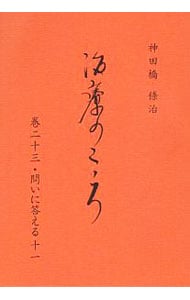 神田橋 條治
治療のこころ
巻二十三・問いに答える 十一